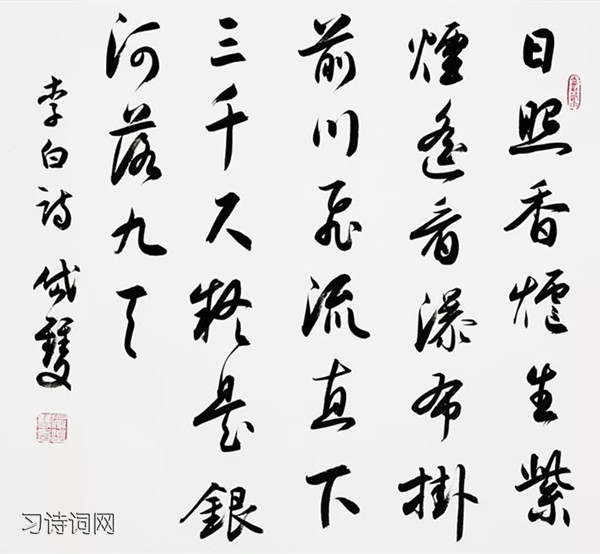 日照香爐生紫
煙遙看瀑布掛
前川飛流直下
三千尺疑是銀
河落九天
李白詩
习诗词网